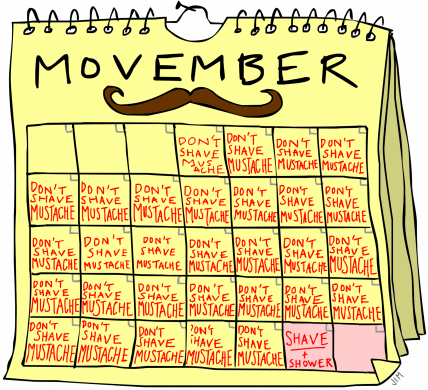 MOVEMBER
DON'T
SHAVE
MUS
TACHE
DON'T
SHAVE
MUSTACHE
DON'T
SHAVE
MUSTACHE
DON'T
SHAVE
MUSTACHE
DON'T
SHAVE
MUSTACHE
DON'T
SHAVE
MUSTACHE
DON'T
SHAVE
MUSTACHE
DON'T
SHAVE
MUSTACHE
DON'T
SHAVE
MUSTACHE
DON'T
SHAVE
MUSTACHE
DON'T
SHAVE
MUSTACHE
DON'T
SHAVE
MUSTACHE
DON'T
SHAVE
MUSTACHE
DON'T
SHAVE
MUSTACHE
DON'T
SHAVE
MUSTACHE
DON'T
SHAVE
MUSTACHE
DON'T
SHAVE
MUSTACHE
DON'T
SHAVE
MUSTACHE
DON'T
SHAVE
MUSTACHE
DON'T
SHAVE
MUSTACHE
DON'T
SHAVE
MUSTACHE
DON'T
SHAVE
MUSTACHE
DON'T
SHAVE
MUSTACHE
DON'T
SHAVE
MUSTACHE
DON'T
SHAVE
MUSTACHE
DON'T
SHAVE
MUSTACHE
DON'T
SHAVE
MUSTACHE
DON'T
SHAVE
MUSTACHE
DON'T
SHAVE
MUSTACHE
DON'T
SHAVE
MUSTACHE
SHAVE
+
SHOWER
JIM